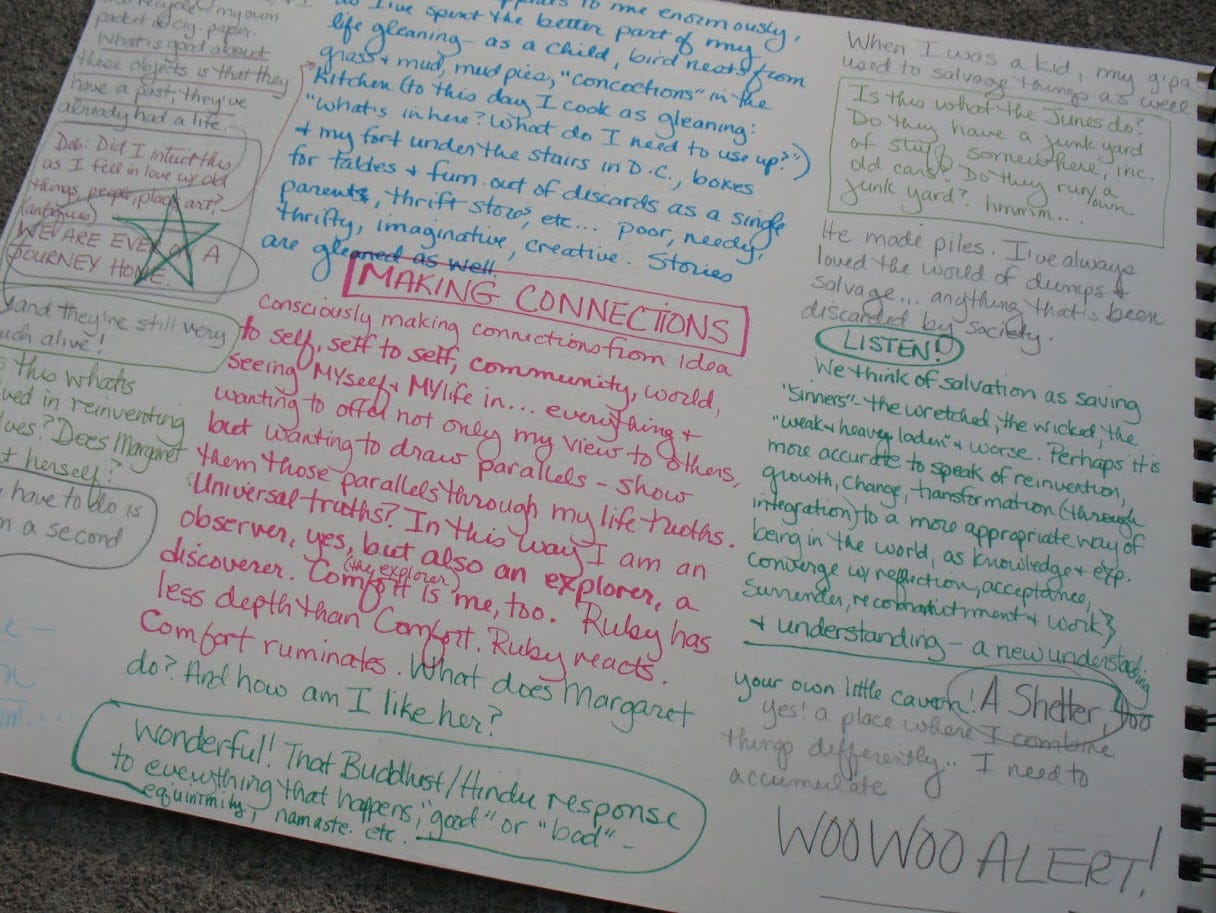 recycle my own
packet o cig. paper.
What is good about
these objects is that they
have a past, they've
already had a life.
Deb: Did I intuit this
as I feel in love w/ old
things, people, places, art?
(antiques)
WE ARE EVER ON A
JOURNEY HOME.
and they're still very
much alive!
this what's
in reinventing
Does Margaret
herself?
have to do is
in a second
to me enormously,
I've spent the better part of my
life gleaning - as a child, bird nests from
grass & mud, mud pies, "concoctions" in the
kitchen (to this day I cook as gleaning:
"What's in here? What do I need to use up?")
& my fort under the stairs in D.C., boxes
for tables & furn. out of discards as a single
parent, thrift stores, etc... poor, needy,
thrifty, imaginative, creative. Stories
are gleaned as well.
MAKING CONNECTIONS
Consciously making connections from idea
to self, self to self, community, world,
seeing MYself & MY life in... everything &
wanting to offer not only my view to others,
but wanting to draw parallels - show
them those parallels through my life truths.
Universal truths? In this way I am an
observer, yes, but also an explorer, a
discoverer. Comfort (the explorer) is me, too. Ruby has
less depth than Comfort. Ruby reacts.
Comfort ruminates. What does Margaret
do? And how am I like her?
Wonderful! That Buddhist/Hindu response
to everything that happens, "good" or "bad" -
equinimity, namaste. etc.
When I was a kid, my g'pa
used to salvage things as well
Is this what the Junes do?
Do they have a junk yard
of stuff somewhere, inc.
old cars? Do they run/own
junk yard? hmmm...
He made piles. I've always
loved the world of dumps &
salvage... anything that's been
discarded by society.
LISTEN!
We think of salvation as saving
"sinners" - the wretched, the wicked, the
"weak & heavy laden" & worse. Perhaps it is
more accurate to speak of reinvention,
growth, change, transformation (through
integration) to a more appropriate way of
being in the world, as knowledge & exp.
converge w/ reflection, acceptance,
surrender, & work}
& understanding - a new understanding
your own little cavern! A Shelter, too
yes! a place where I combine
things differently.. I need to
accumulate
WOOWOO ALERT!